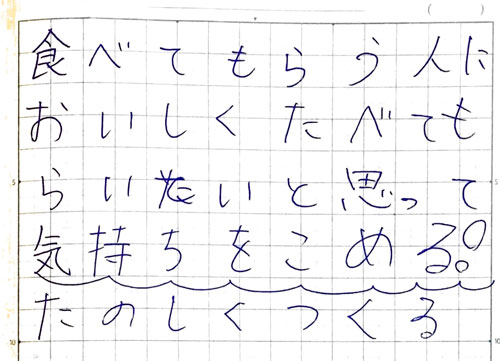 食べてもらう人に
おいしくたべても
らいたいと思って
気持ちをこめる。
たのしくつくる